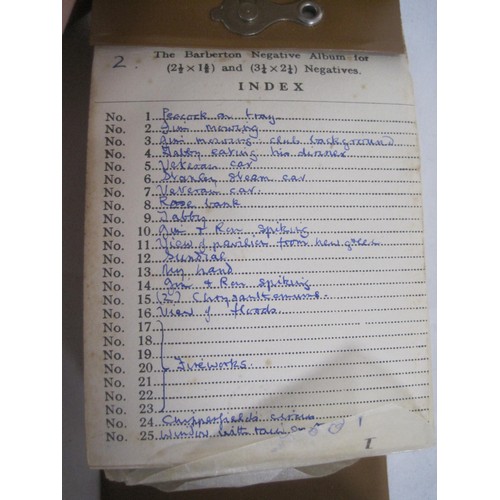 2.
The Barberton Negative Album for
(2½ × 1⅝) and (3¼ × 2¼) Negatives.
INDEX
No. 1. Peacock on tray
No. 2. Jim mowing
No. 3. Jim mowing club background
No. 4. Tabby eating his dinner
No. 5. Veteran car
No. 6. Stanley steam car
No. 7. Veteran car.
No. 8. Rose bank
No. 9. Tabby
No. 10. Jim & Ron spiking
No. 11. View of pavilion from new green
No. 12. Sundial
No. 13. My hand
No. 14. Jim & Ron spiking
No. 15. (2) Chrysanthemums.
No. 16. View of floods.
No. 17.
No. 18.
No. 19.
No. 20. Fireworks.
No. 21.
No. 22.
No. 23.
No. 24. Chipperfields circus
No. 25. Window with